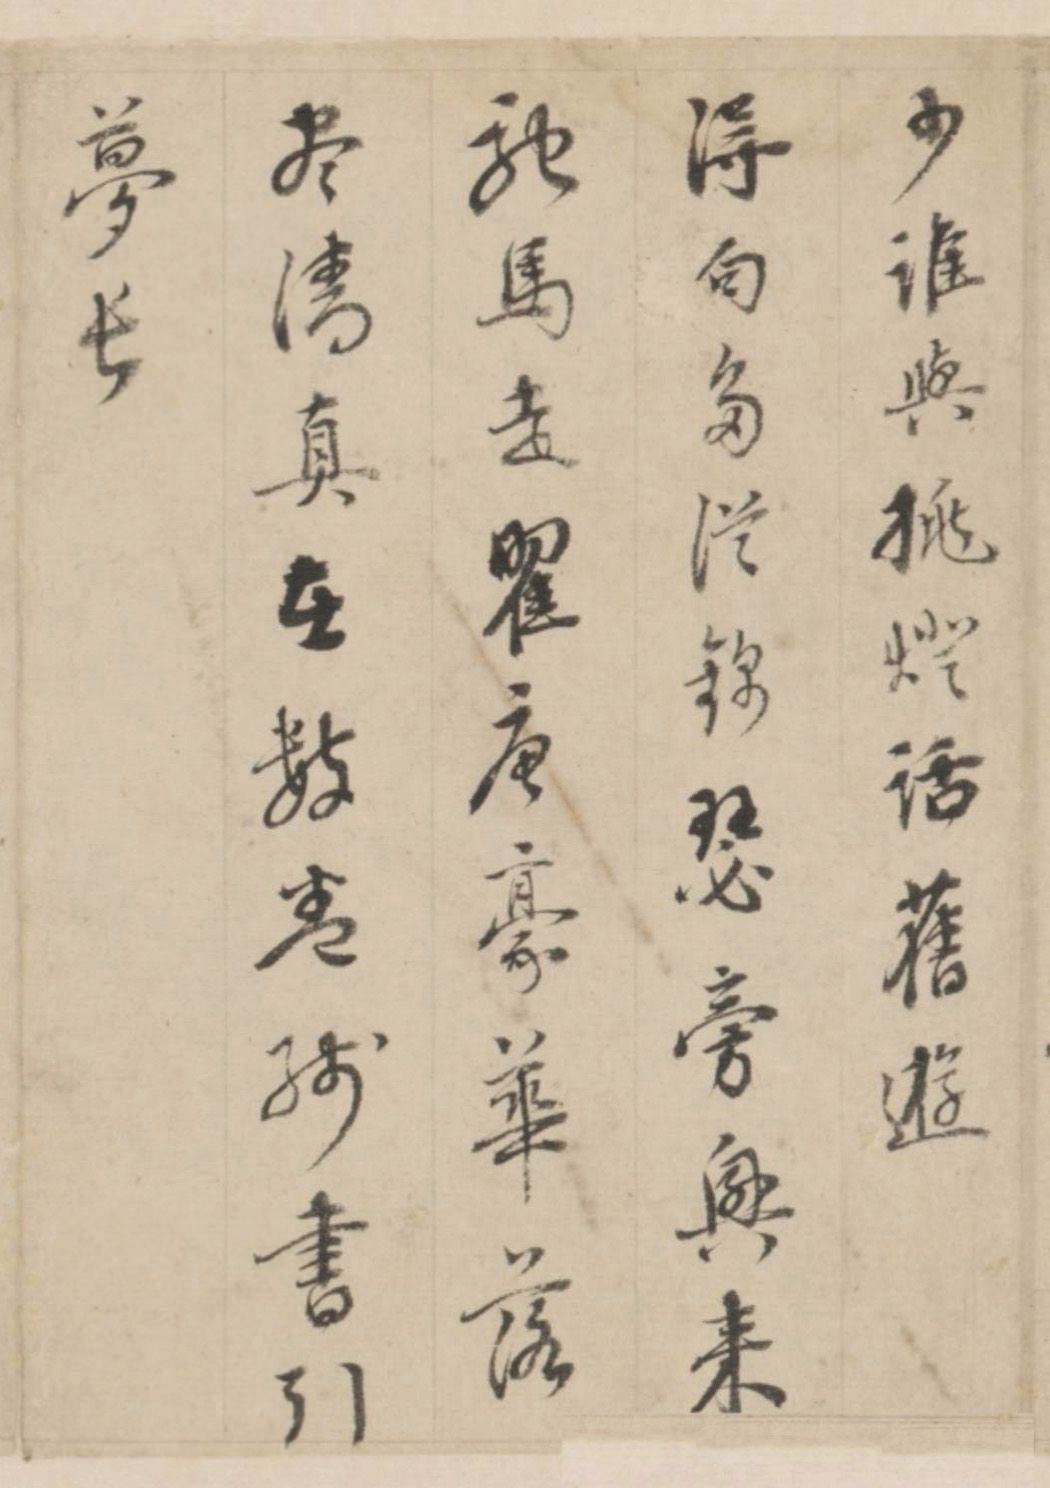 少誰與挑燈話舊遊
得句多從錦瑟旁興來
馳馬走瞿唐豪華落
盡清真在數卷殘書引
夢長